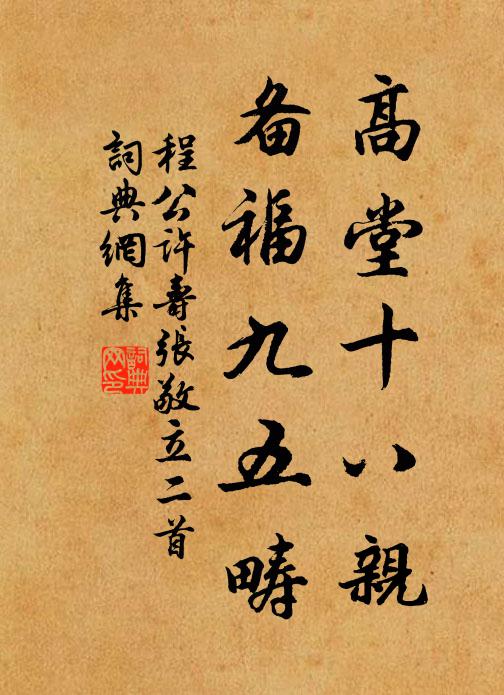 高堂十八親
备福九五疇
程公许壽張敬立二首
詞典網集
詞典網印